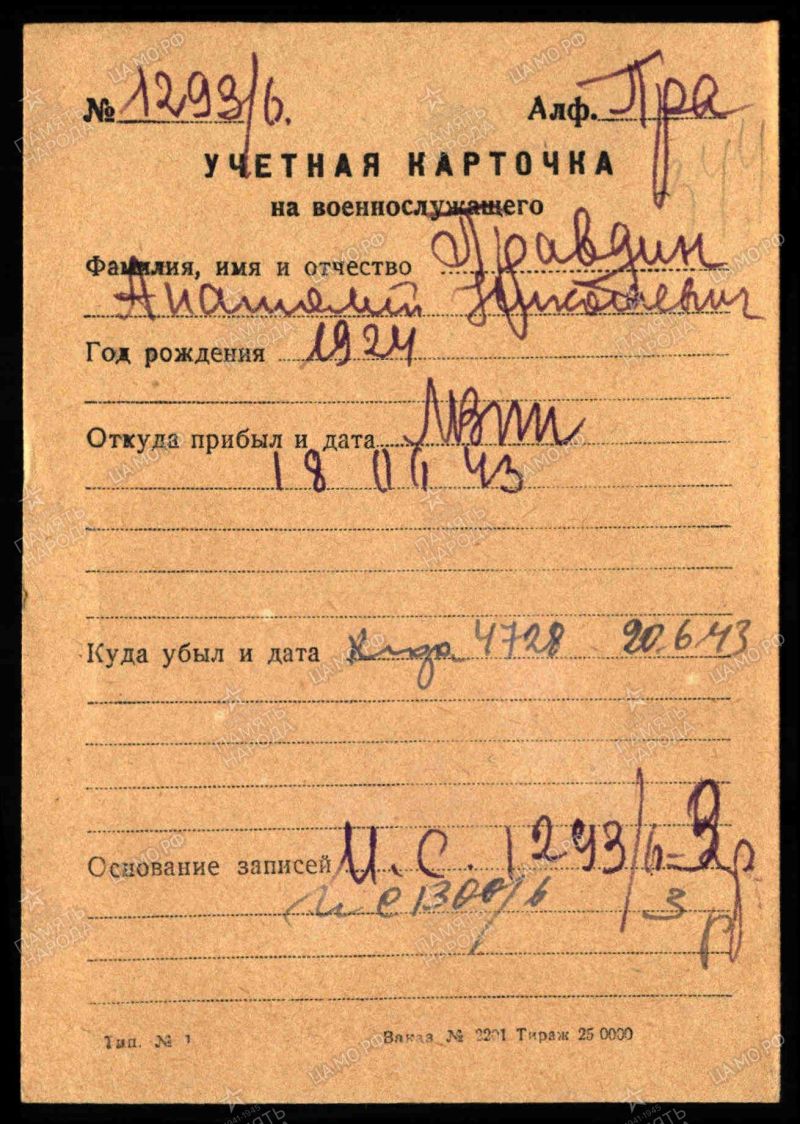 № 1293/6. Алф. Пра
344
УЧЕТНАЯ КАРТОЧКА
на военнослужащего
Фамилия, имя и отчество Правдин
Анатолий Николаевич
Год рождения 1924
Откуда прибыл и дата
18 06 43
Куда убыл и дата 4728 20.6.43
Основание записей И.С. 1293/6-3р
ис 1300/6 3 р
Тип. № 1 Заказ № 2291 Тираж 25 0000